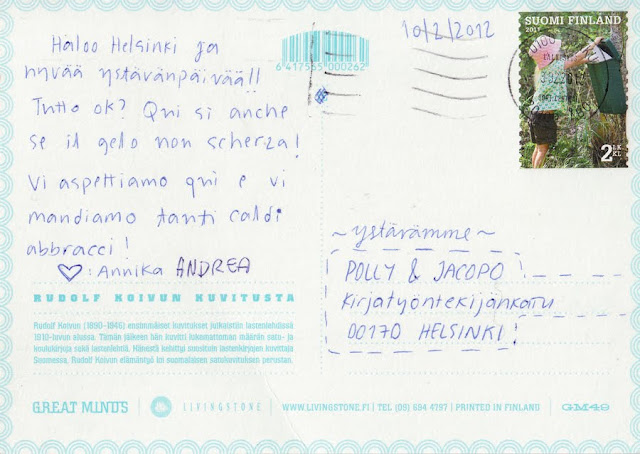 Haloo Helsinki ja
hyvää ystävänpäivää!!
Tutto ok? Qui si anche
se il gelo non scherza!
Vi aspettiamo qui e vi
mandiamo tanti caldi
abbracci!
♡: Annika ANDREA
RUDOLF KOIVUN KUVITUSTA
Rudolf Koivun (1890-1946) ensimmäiset kuvitukset julkaistiin lastenlehdissä
1910-luvun alussa. Tämän jälkeen hän kuvitti lukemattoman määrän satu- ja
koulukirjoja sekä lastenlehtiä. Hänestä kehittyi suosituin lastenkirjojen kuvittaja
Suomessa. Rudolf Koivun elämäntyö loi suomalaisen satukuvituksen perustan.
6 417555 000262
10/2/2012
SUOMI FINLAND
2011
2 LK
KL
~ystävämme~
POLLY & JACOPO
Kirjatyöntekijänkatu
00170 HELSINKI!
GREAT MINDS | LIVINGSTONE | WWW.LIVINGSTONE.FI | TEL (09) 694 4797 | PRINTED IN FINLAND | GM49